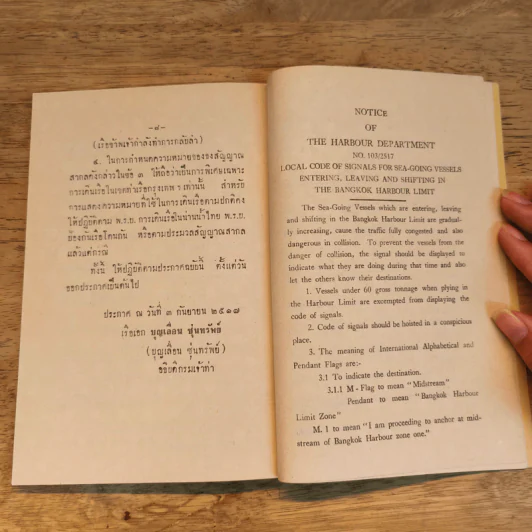 -๘-
(เรือข้าพเจ้ากำลังทำการกลับลำ)
๔. ในการกำหนดความหมายของธงสัญญาณ
สากลดังกล่าวในข้อ ๓ ให้ถือว่าเป็นการพิเศษเฉพาะ
การเดินเรือในเขตท่าเรือกรุงเทพ ฯ เท่านั้น สำหรับ
การแสดงความหมายที่ใช้ในการเดินเรือตามปกติคง
ให้ปฏิบัติตาม พ.ร.บ. การเดินเรือในน่านน้ำไทย พ.ร.บ.
ป้องกันเรือโดนกัน หรือตามประมวลสัญญาณสากล
แล้วแต่กรณี
ทั้งนี้ ให้ปฏิบัติตามประกาศฉบับนี้ ตั้งแต่วัน
ออกประกาศเป็นต้นไป
ประกาศ ณ วันที่ ๓ กันยายน ๒๕๑๗
เรือเอก บุญเลื่อน ขุ่นทรัพย์
(บุญเลื่อน ขุ่นทรัพย์)
อธิบดีกรมเจ้าท่า
NOTICE
OF
THE HARBOUR DEPARTMENT
NO. 103/2517
LOCAL CODE OF SIGNALS FOR SEA-GOING VESSELS
ENTERING, LEAVING AND SHIFTING IN
THE BANGKOK HARBOUR LIMIT
The Sea-Going Vessels which are entering, leaving
and shifting in the Bangkok Harbour Limit are gradual-
ly increasing, cause the traffic fully congested and also
dangerous in collision. To prevent the vessels from the
danger of collision, the signal should be displayed to
indicate what they are doing during that time and also
let the others know their destinations.
1. Vessels under 60 gross tonnage when plying in
the Harbour Limit are exempted from displaying the
code of signals.
2. Code of signals should be hoisted in a conspicious
place.
3. The meaning of International Alphabetical and
Pendant Flags are:-
3.1 To indicate the destination.
3.1.1 M - Flag to mean "Midstream"
Pendant to mean "Bangkok Harbour
Limit Zone"
M. 1 to mean "I am proceeding to anchor at mid-
stream of Bangkok Harbour zone one."